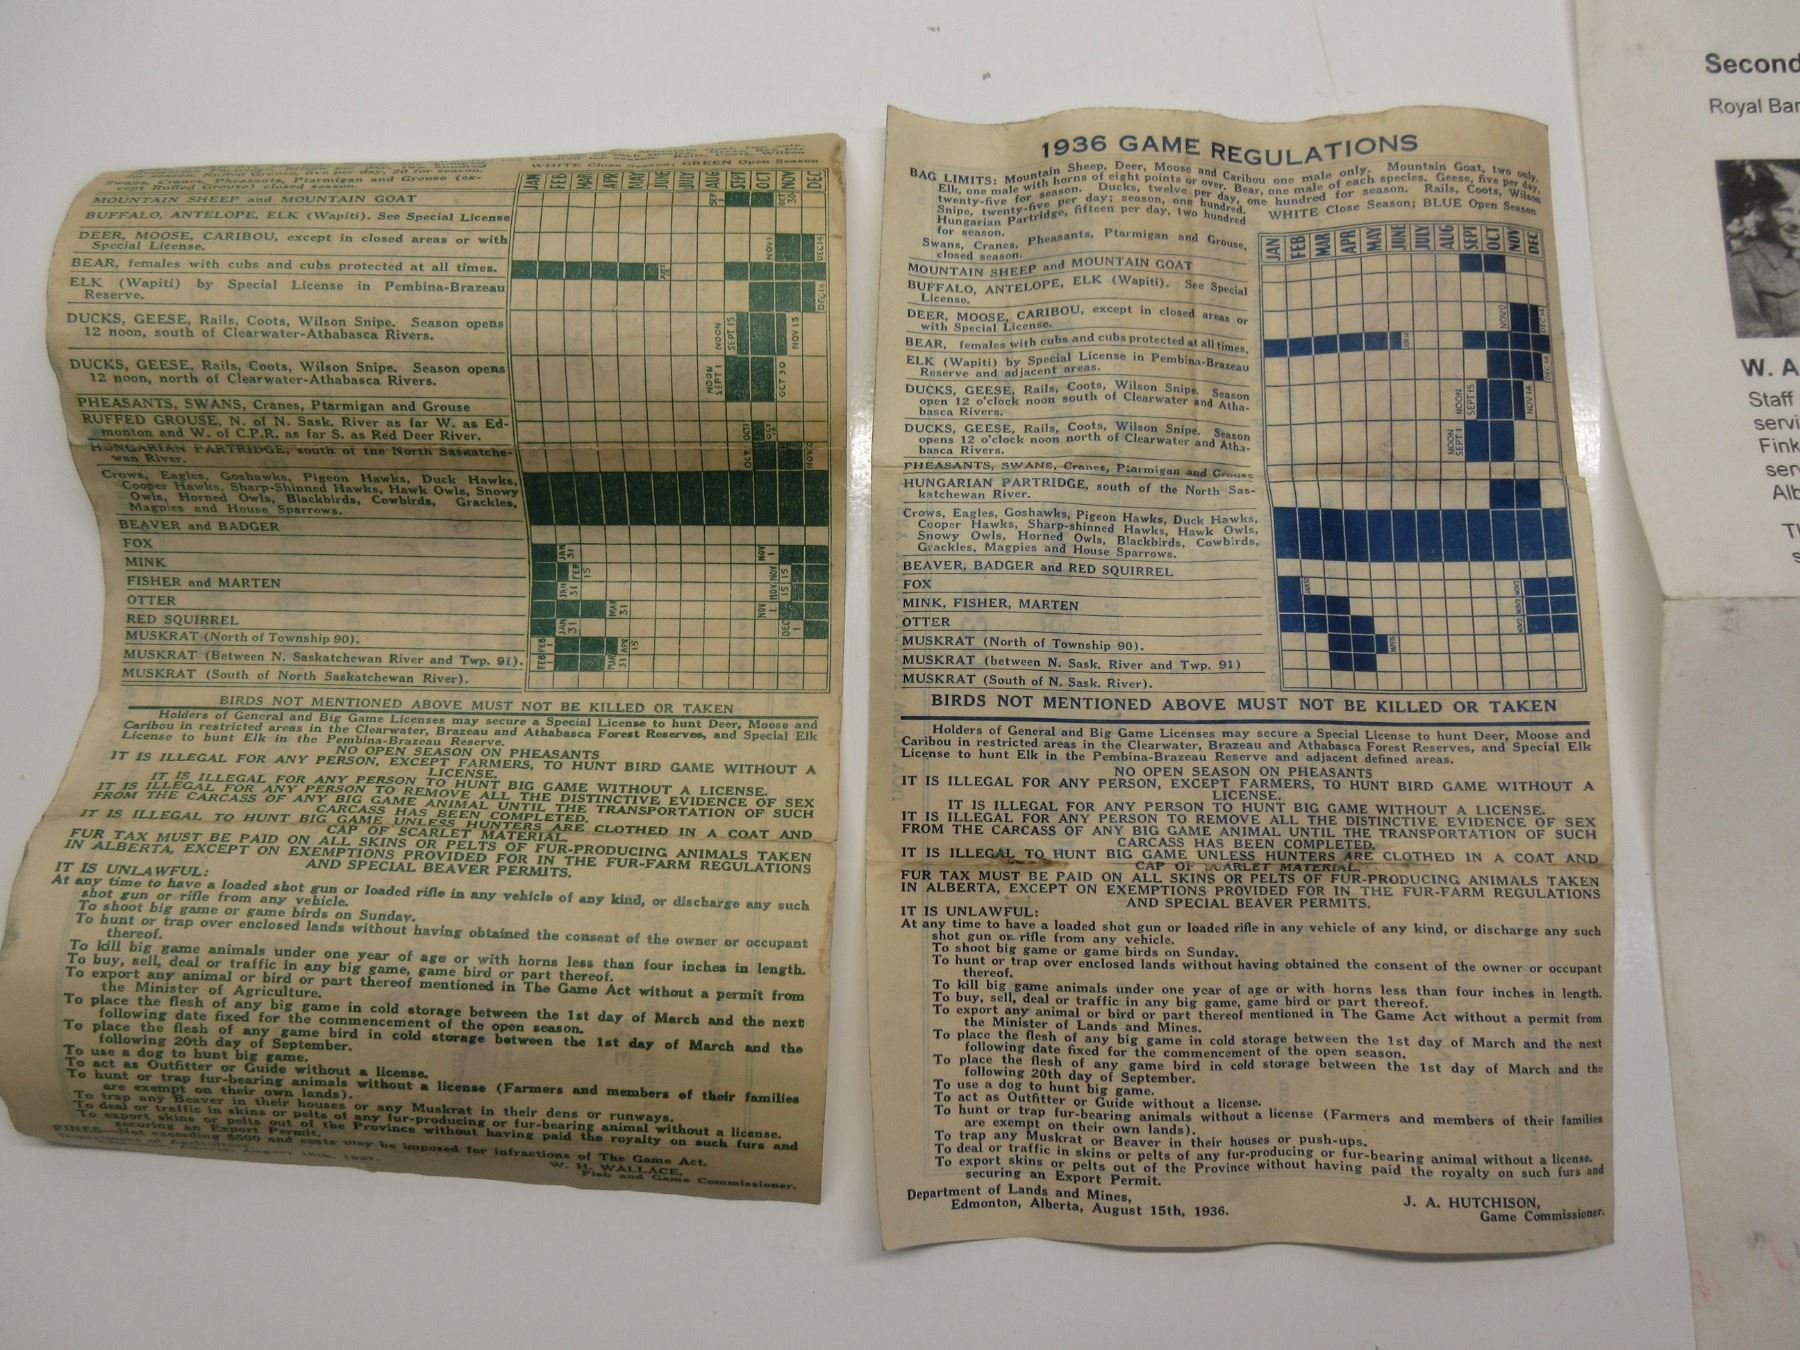 WHITE Close Season; GREEN Open Season
Swans, Cranes, Pheasants, Ptarmigan and Grouse (ex-
cept Ruffed Grouse) closed season.
JAN FEB MAR APR MAY JUNE JULY AUG SEPT OCT NOV DEC
MOUNTAIN SHEEP and MOUNTAIN GOAT
BUFFALO, ANTELOPE, ELK (Wapiti). See Special License
DEER, MOOSE, CARIBOU, except in closed areas or with
Special License.
BEAR, females with cubs and cubs protected at all times.
ELK (Wapiti) by Special License in Pembina-Brazeau
Reserve.
DUCKS, GEESE, Rails, Coots, Wilson Snipe. Season opens
12 noon, south of Clearwater-Athabasca Rivers.
DUCKS, GEESE, Rails, Coots, Wilson Snipe. Season opens
12 noon, north of Clearwater-Athabasca Rivers.
PHEASANTS, SWANS, Cranes, Ptarmigan and Grouse
RUFFED GROUSE, N. of N. Sask. River as far W. as Ed-
monton and W. of C.P.R. as far S. as Red Deer River.
HUNGARIAN PARTRIDGE, south of the North Saskatche-
wan River.
Crows, Eagles, Goshawks, Pigeon Hawks, Duck Hawks,
Cooper Hawks, Sharp-Shinned Hawks, Hawk Owls, Snowy
Owls, Horned Owls, Blackbirds, Cowbirds, Grackles,
Magpies and House Sparrows.
BEAVER and BADGER
FOX
MINK
FISHER and MARTEN
OTTER
RED SQUIRREL
MUSKRAT (North of Township 90).
MUSKRAT (Between N. Saskatchewan River and Twp. 91).
MUSKRAT (South of North Saskatchewan River).
BIRDS NOT MENTIONED ABOVE MUST NOT BE KILLED OR TAKEN
Holders of General and Big Game Licenses may secure a Special License to hunt Deer, Moose and
Caribou in restricted areas in the Clearwater, Brazeau and Athabasca Forest Reserves, and Special Elk
License to hunt Elk in the Pembina-Brazeau Reserve.
NO OPEN SEASON ON PHEASANTS
IT IS ILLEGAL FOR ANY PERSON, EXCEPT FARMERS, TO HUNT BIRD GAME WITHOUT A
LICENSE.
IT IS ILLEGAL FOR ANY PERSON TO HUNT BIG GAME WITHOUT A LICENSE.
IT IS ILLEGAL FOR ANY PERSON TO REMOVE ALL THE DISTINCTIVE EVIDENCE OF SEX
FROM THE CARCASS OF ANY BIG GAME ANIMAL UNTIL THE TRANSPORTATION OF SUCH
CARCASS HAS BEEN COMPLETED.
IT IS ILLEGAL TO HUNT BIG GAME UNLESS HUNTERS ARE CLOTHED IN A COAT AND
CAP OF SCARLET MATERIAL.
FUR TAX MUST BE PAID ON ALL SKINS OR PELTS OF FUR-PRODUCING ANIMALS TAKEN
IN ALBERTA, EXCEPT ON EXEMPTIONS PROVIDED FOR IN THE FUR-FARM REGULATIONS
AND SPECIAL BEAVER PERMITS.
IT IS UNLAWFUL:
At any time to have a loaded shot gun or loaded rifle in any vehicle of any kind, or discharge any such
shot gun or rifle from any vehicle.
To shoot big game or game birds on Sunday.
To hunt or trap over enclosed lands without having obtained the consent of the owner or occupant
thereof.
To kill big game animals under one year of age or with horns less than four inches in length.
To buy, sell, deal or traffic in any big game, game bird or part thereof.
To export any animal or bird or part thereof mentioned in The Game Act without a permit from
the Minister of Agriculture.
To place the flesh of any big game in cold storage between the 1st day of March and the next
following date fixed for the commencement of the open season.
To place the flesh of any game bird in cold storage between the 1st day of March and the
following 20th day of September.
To use a dog to hunt big game.
To act as Outfitter or Guide without a license.
To hunt or trap fur-bearing animals without a license (Farmers and members of their families
are exempt on their own lands).
To trap any Beaver in their houses or any Muskrat in their dens or runways.
To deal or traffic in skins or pelts of any fur-producing or fur-bearing animal without a license.
To export skins or pelts out of the Province without having paid the royalty on such furs and
securing an Export Permit.
FINES—Not exceeding $500 and costs may be imposed for infractions of The Game Act.
W. H. WALLACE,
Fish and Game Commissioner.
1936 GAME REGULATIONS
BAG LIMITS: Mountain Sheep, Deer, Moose and Caribou one male only. Mountain Goat, two only.
Elk, one male with horns of eight points or over. Bear, one male of each species. Geese, five per day,
twenty-five for season. Ducks, twelve per day, one hundred for season. Rails, Coots, Wilson
Snipe, twenty-five per day; season, one hundred.
Hungarian Partridge, fifteen per day, two hundred
for season.
WHITE Close Season; BLUE Open Season
Swans, Cranes, Pheasants, Ptarmigan and Grouse,
closed season.
JAN FEB MAR APR MAY JUNE JULY AUG SEPT OCT NOV DEC
MOUNTAIN SHEEP and MOUNTAIN GOAT
BUFFALO, ANTELOPE, ELK (Wapiti). See Special
License.
DEER, MOOSE, CARIBOU, except in closed areas or
with Special License.
BEAR, females with cubs and cubs protected at all times.
ELK (Wapiti) by Special License in Pembina-Brazeau
Reserve and adjacent areas.
DUCKS, GEESE, Rails, Coots, Wilson Snipe. Season
open 12 o'clock noon south of Clearwater and Atha-
basca Rivers.
DUCKS, GEESE, Rails, Coots, Wilson Snipe. Season
opens 12 o'clock noon north of Clearwater and Atha-
basca Rivers.
PHEASANTS, SWANS, Cranes, Ptarmigan and Grouse
HUNGARIAN PARTRIDGE, south of the North Sas-
katchewan River.
Crows, Eagles, Goshawks, Pigeon Hawks, Duck Hawks,
Cooper Hawks, Sharp-shinned Hawks, Hawk Owls,
Snowy Owls, Horned Owls, Blackbirds, Cowbirds,
Grackles, Magpies and House Sparrows.
BEAVER, BADGER and RED SQUIRREL
FOX
MINK, FISHER, MARTEN
OTTER
MUSKRAT (North of Township 90).
MUSKRAT (between N. Sask. River and Twp. 91)
MUSKRAT (South of N. Sask. River).
BIRDS NOT MENTIONED ABOVE MUST NOT BE KILLED OR TAKEN
Holders of General and Big Game Licenses may secure a Special License to hunt Deer, Moose and
Caribou in restricted areas in the Clearwater, Brazeau and Athabasca Forest Reserves, and Special Elk
License to hunt Elk in the Pembina-Brazeau Reserve and adjacent defined areas.
NO OPEN SEASON ON PHEASANTS
IT IS ILLEGAL FOR ANY PERSON, EXCEPT FARMERS, TO HUNT BIRD GAME WITHOUT A
LICENSE.
IT IS ILLEGAL FOR ANY PERSON TO HUNT BIG GAME WITHOUT A LICENSE.
IT IS ILLEGAL FOR ANY PERSON TO REMOVE ALL THE DISTINCTIVE EVIDENCE OF SEX
FROM THE CARCASS OF ANY BIG GAME ANIMAL UNTIL THE TRANSPORTATION OF SUCH
CARCASS HAS BEEN COMPLETED.
IT IS ILLEGAL TO HUNT BIG GAME UNLESS HUNTERS ARE CLOTHED IN A COAT AND
CAP OF SCARLET MATERIAL.
FUR TAX MUST BE PAID ON ALL SKINS OR PELTS OF FUR-PRODUCING ANIMALS TAKEN
IN ALBERTA, EXCEPT ON EXEMPTIONS PROVIDED FOR IN THE FUR-FARM REGULATIONS
AND SPECIAL BEAVER PERMITS.
IT IS UNLAWFUL:
At any time to have a loaded shot gun or loaded rifle in any vehicle of any kind, or discharge any such
shot gun or rifle from any vehicle.
To shoot big game or game birds on Sunday.
To hunt or trap over enclosed lands without having obtained the consent of the owner or occupant
thereof.
To kill big game animals under one year of age or with horns less than four inches in length.
To buy, sell, deal or traffic in any big game, game bird or part thereof.
To export any animal or bird or part thereof mentioned in The Game Act without a permit from
the Minister of Lands and Mines.
To place the flesh of any big game in cold storage between the 1st day of March and the next
following date fixed for the commencement of the open season.
To place the flesh of any game bird in cold storage between the 1st day of March and the
following 20th day of September.
To use a dog to hunt big game.
To act as Outfitter or Guide without a license.
To hunt or trap fur-bearing animals without a license (Farmers and members of their families
are exempt on their own lands).
To trap any Muskrat or Beaver in their houses or push-ups.
To deal or traffic in skins or pelts of any fur-producing or fur-bearing animal without a license.
To export skins or pelts out of the Province without having paid the royalty on such furs and
securing an Export Permit.
Department of Lands and Mines,
Edmonton, Alberta, August 15th, 1936.
J. A. HUTCHISON,
Game Commissioner.
Second
Royal Ban
W. A
Staff
servi
Fink
sen
Alb
Th
s